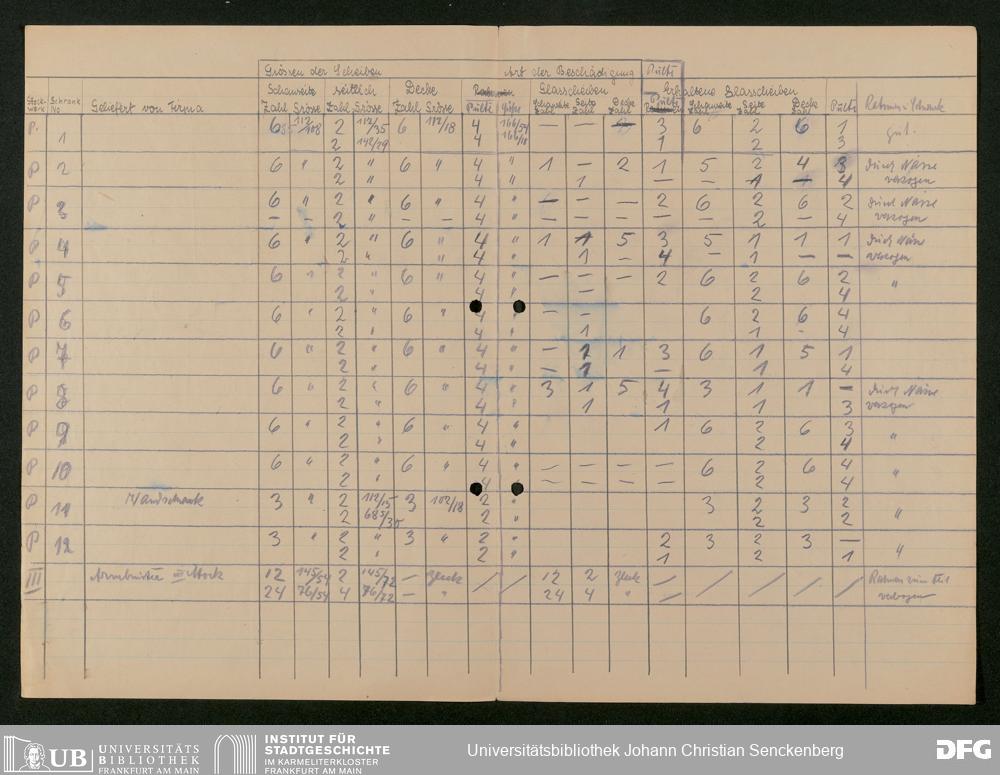 Grössen der Scheiben Art der Beschädigung Pulte
Schauseite seitlich Decke Glasscheiben Erhaltene Glasscheiben
Stockwerk Schrank No. Geliefert von Firma Zahl Grösse Zahl Grösse Zahl Grösse Pulte Seite Zahl Decke Zahl Pulte Schauseite Zahl Seite Zahl Decke Zahl Pulte Rahmen Schrank
P. 1 6 112/108 2 112/35 6 112/18 4 166/54 — — — 3 6 2 6 1 gut.
2 142/29 4 166/18 1 2 3
P 2 6 " 2 " 6 " 4 " 1 — 2 1 5 2 4 3 durch Nässe
2 " 4 " 1 — — 1 — 4 verzogen
P 3 6 " 2 " 6 " 4 " — — — 2 6 2 6 2 durch Nässe
— — 2 " — — 4 " — — — — — 2 — 4 verzogen
P 4 6 " 2 " 6 " 4 " 1 1 5 3 5 1 1 1 durch Nässe
2 " " 4 " 1 — 4 — 1 — — verzogen
P 5 6 " 2 " 6 " 4 " — — — 2 6 2 6 2 "
2 " 4 " — 2 4
P 6 6 " 2 " 6 " 4 " — — 6 2 6 4
2 " 4 " 1 1 - 4
P 7 6 " 2 " 6 " 4 " — 1 1 3 6 1 5 1
2 " 4 " — 1 — 1 4
P 8 6 " 2 " 6 " 4 " 3 1 5 4 3 1 1 — durch Nässe
2 " 4 " 1 1 1 3 verzogen
P 9 6 " 2 " 6 " 4 " 1 6 2 6 3 "
2 " 4 " 2 4
P 10 6 " 2 " 6 " 4 " — — — — 6 2 6 4 "
2 " 4 " — — — — 2 4
P 11 Wandschrank 3 " 2 112/15 3 102/18 2 " 3 2 3 2 "
2 685/35 2 " 2 2
P 12 3 " 2 " 3 " 2 " 2 3 2 3 — "
2 " 2 " 1 2 1
III III Stock 12 145/54 2 145/72 — / / 12 2 / / / / / Rahmen zum Teil
24 76/54 4 76/72 — " 24 4 " verbogen
UB UNIVERSITÄTS
BIBLIOTHEK
FRANKFURT AM MAIN
INSTITUT FÜR
STADTGESCHICHTE
IM KARMELITERKLOSTER
FRANKFURT AM MAIN
Universitätsbibliothek Johann Christian Senckenberg
DFG